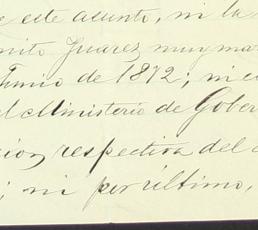 e este asunto, ni la
nito Juarez, muy ma
Junio de 1872; ni e
el Ministerio de Gober
cion respectiva del
; ni por último,